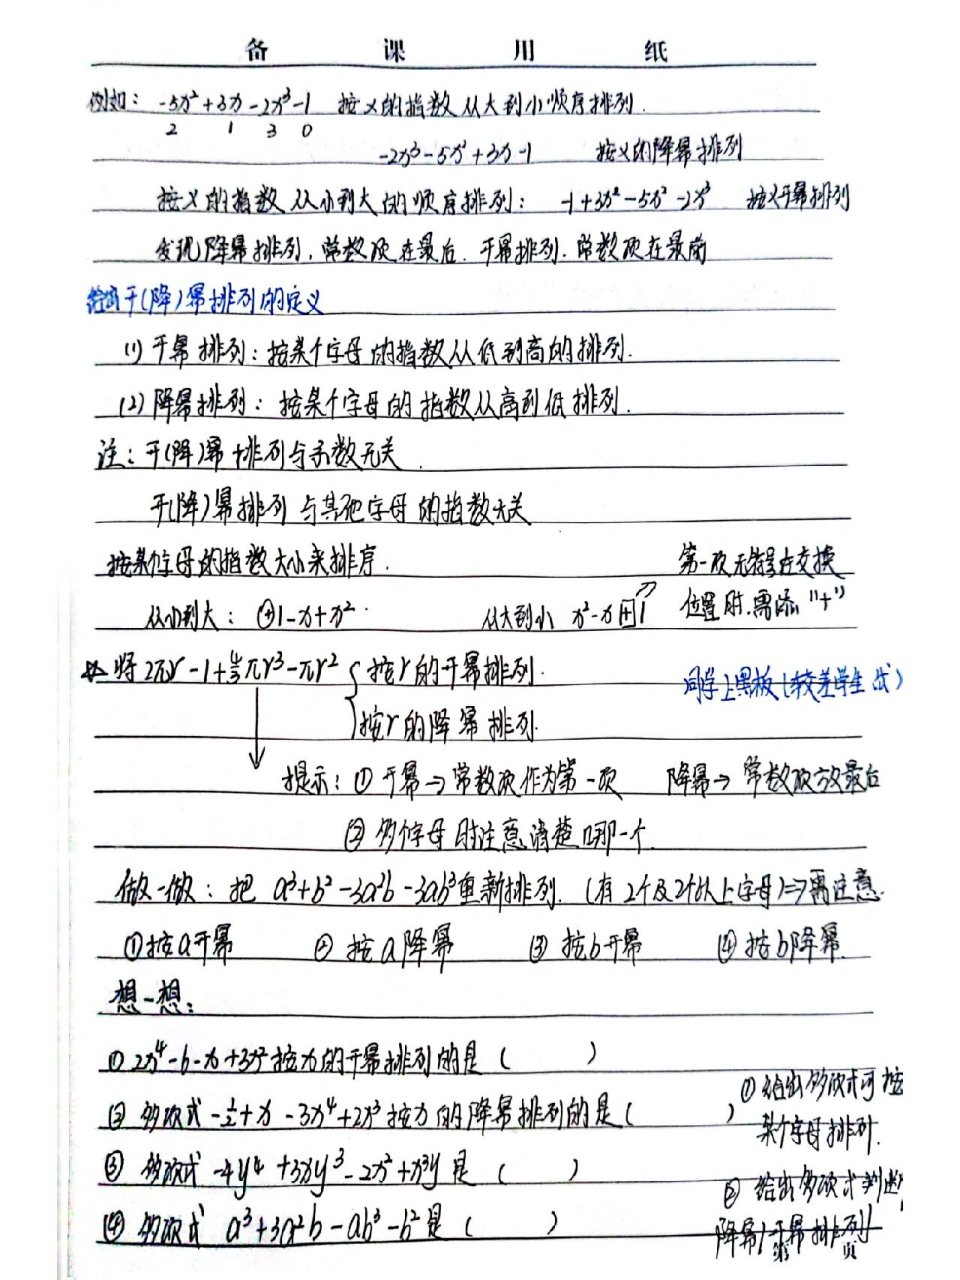 备课用纸
例如：-5x²+3x-2x³-1 按x的指数从大到小顺序排列.
2 1 3 0
-2x³-5x²+3x-1 按x的降幂排列
按x的指数从小到大的顺序排列： -1+3x-5x²-2x³ 按x升幂排列
发现降幂排列，常数项在最后. 升幂排列. 常数项在最前
给出升(降)幂排列的定义
(1) 升幂排列：按某个字母的指数从低到高的排列.
(2) 降幂排列：按某个字母的指数从高到低排列.
注：升(降)幂排列与系数无关.
升(降)幂排列与其他字母的指数无关
按某个字母的指数大小来排序. 第一项无符号在交换
从小到大：⊕1-x+x². 从大到小 x²-x+1 位置时.需添"+"
将2πr-1+4/3πr³-πr² 按r的升幂排列. 同学上黑板(较差学生试)
按r的降幂排列.
提示：① 升幂→常数项作为第一项 降幂→常数项放最后
② 多个字母时注意清楚哪一个.
做一做：把 a³+b²-3a²b-3ab³重新排列. (有2个及2个以上字母)⇒需注意.
①按a升幂 ②按a降幂 ③按b升幂 ④按b降幂.
想一想：
① 2x⁴-6-x+3x²按x的升幂排列的是（ ）
② 多项式-1/2+x-3x⁴+2x³按x的降幂排列的是（ ）
③ 多项式-4y⁴+3xy³-2x²+x³y是（ ）
④ 多项式 a³+3a²b-ab³-b²是（ ）
① 给出多项式可按
某个字母排列.
② 给出多项式判断
降幂/升幂排列
第 页